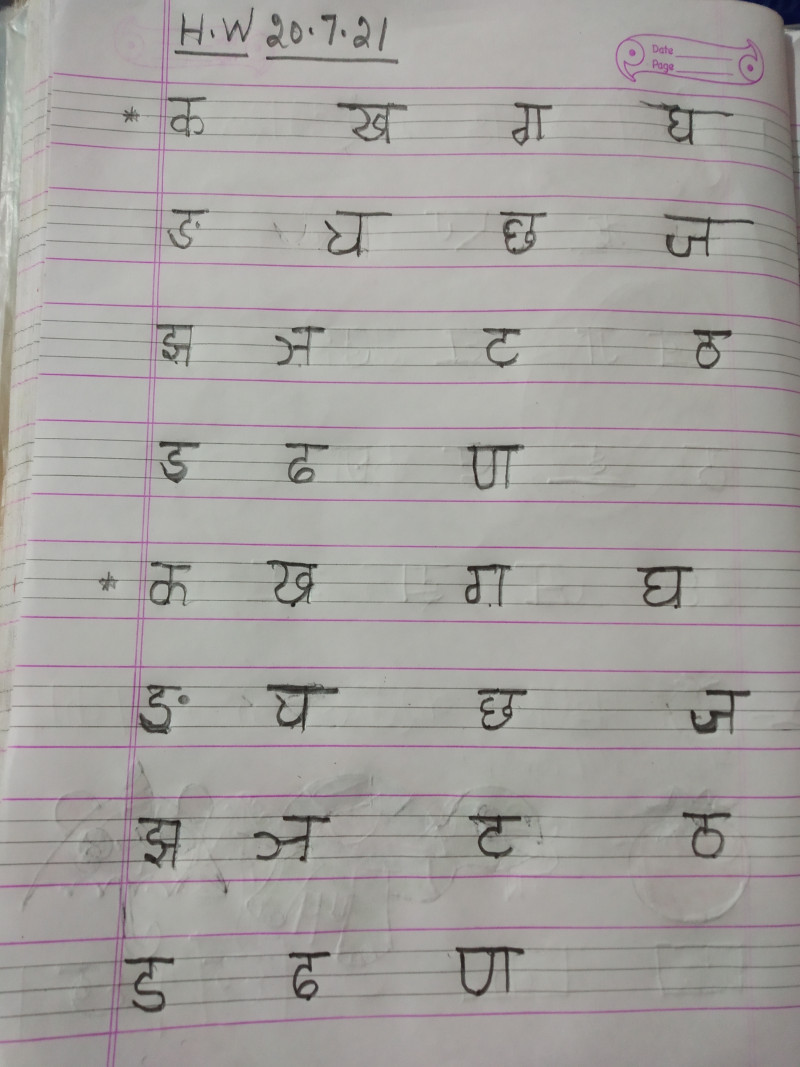 H.W 20.7.21
Date
Page
* क ख ग घ
ङ च छ ज
झ ञ ट ठ
ड ढ ण
* क ख ग घ
ङ च छ ज
झ ञ ट ठ
ड ढ ण